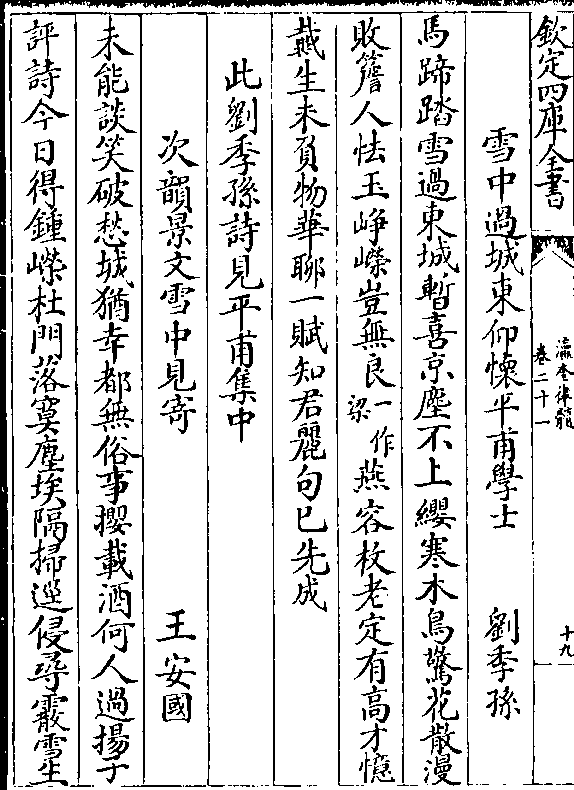 欽定四庫全書
瀛奎律髓
卷二十一
十九
雪中過城東仰懷平甫學士 劉季孫
馬蹄踏雪過東城暫喜京塵不上纓寒木鳥驚花散漫
敗簷人怯玉崢嶸豈無良一作梁燕容枚老定有高才憶
戴生未負物華聊一賦知君麗句已先成
此劉季孫詩見平甫集中
次韻景文雪中見寄 王安國
未能談笑破愁城猶幸都無俗事攖載酒何人過揚子
評詩今日得鍾嶸杜門落寞塵埃隔掃逕侵尋霰雪生